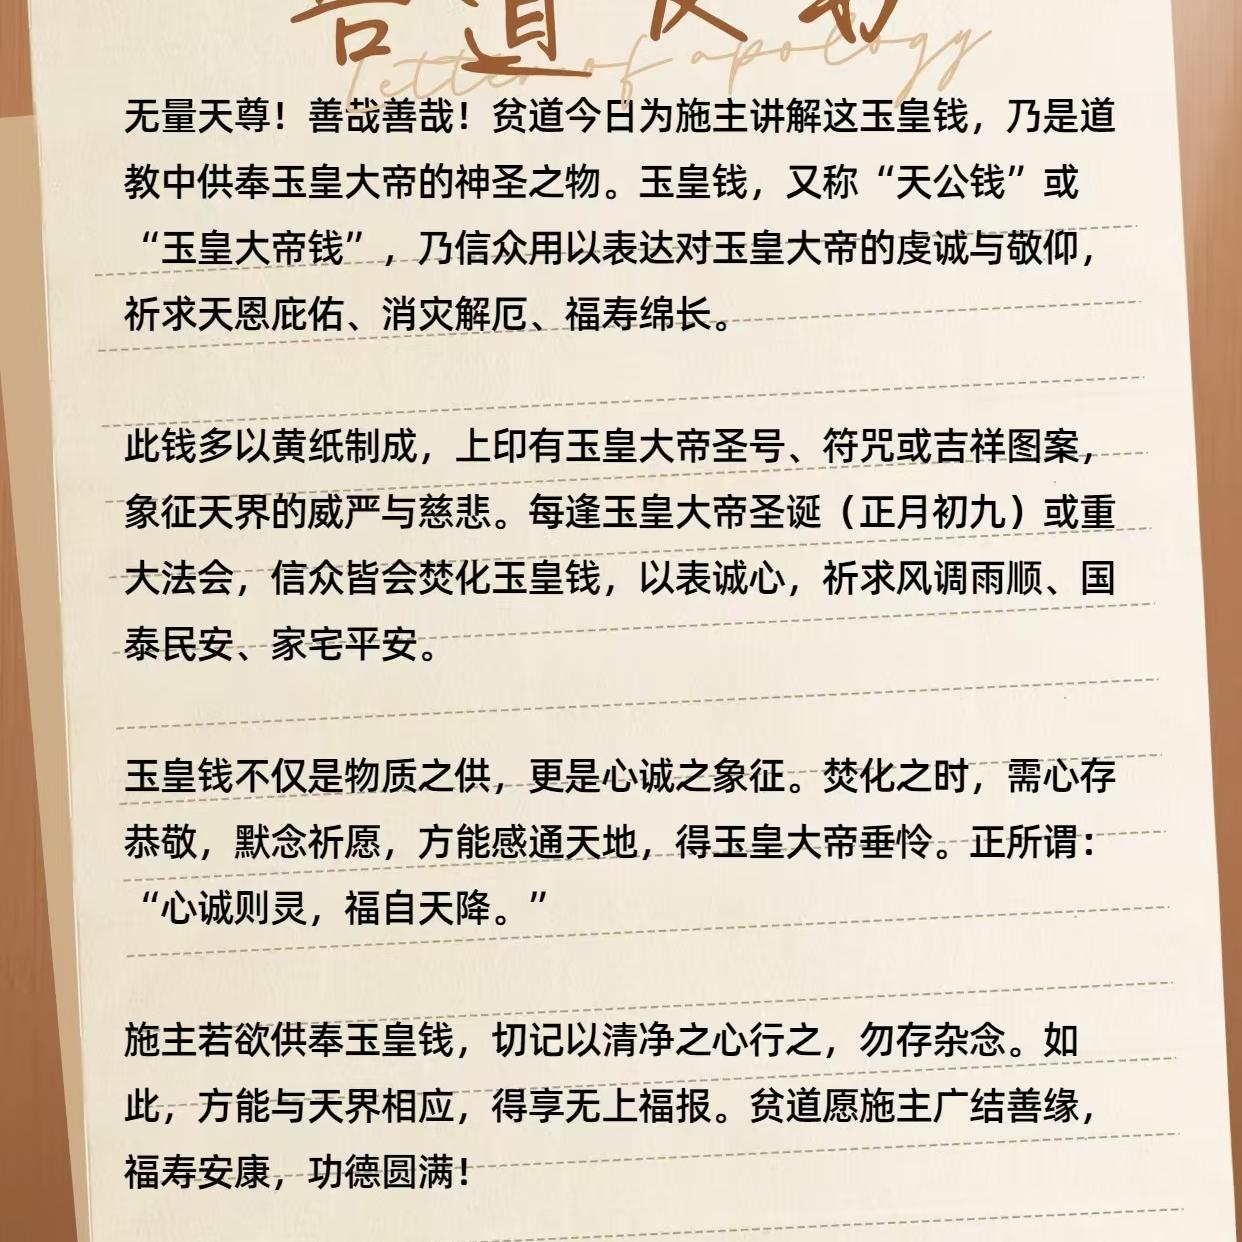 Letter of apology
无量天尊！善哉善哉！贫道今日为施主讲解这玉皇钱，乃是道
教中供奉玉皇大帝的神圣之物。玉皇钱，又称“天公钱”或
“玉皇大帝钱”，乃信众用以表达对玉皇大帝的虔诚与敬仰，
祈求天恩庇佑、消灾解厄、福寿绵长。
此钱多以黄纸制成，上印有玉皇大帝圣号、符咒或吉祥图案，
象征天界的威严与慈悲。每逢玉皇大帝圣诞（正月初九）或重
大法会，信众皆会焚化玉皇钱，以表诚心，祈求风调雨顺、国
泰民安、家宅平安。
玉皇钱不仅是物质之供，更是心诚之象征。焚化之时，需心存
恭敬，默念祈愿，方能感通天地，得玉皇大帝垂怜。正所谓：
“心诚则灵，福自天降。”
施主若欲供奉玉皇钱，切记以清净之心行之，勿存杂念。如
此，方能与天界相应，得享无上福报。贫道愿施主广结善缘，
福寿安康，功德圆满！